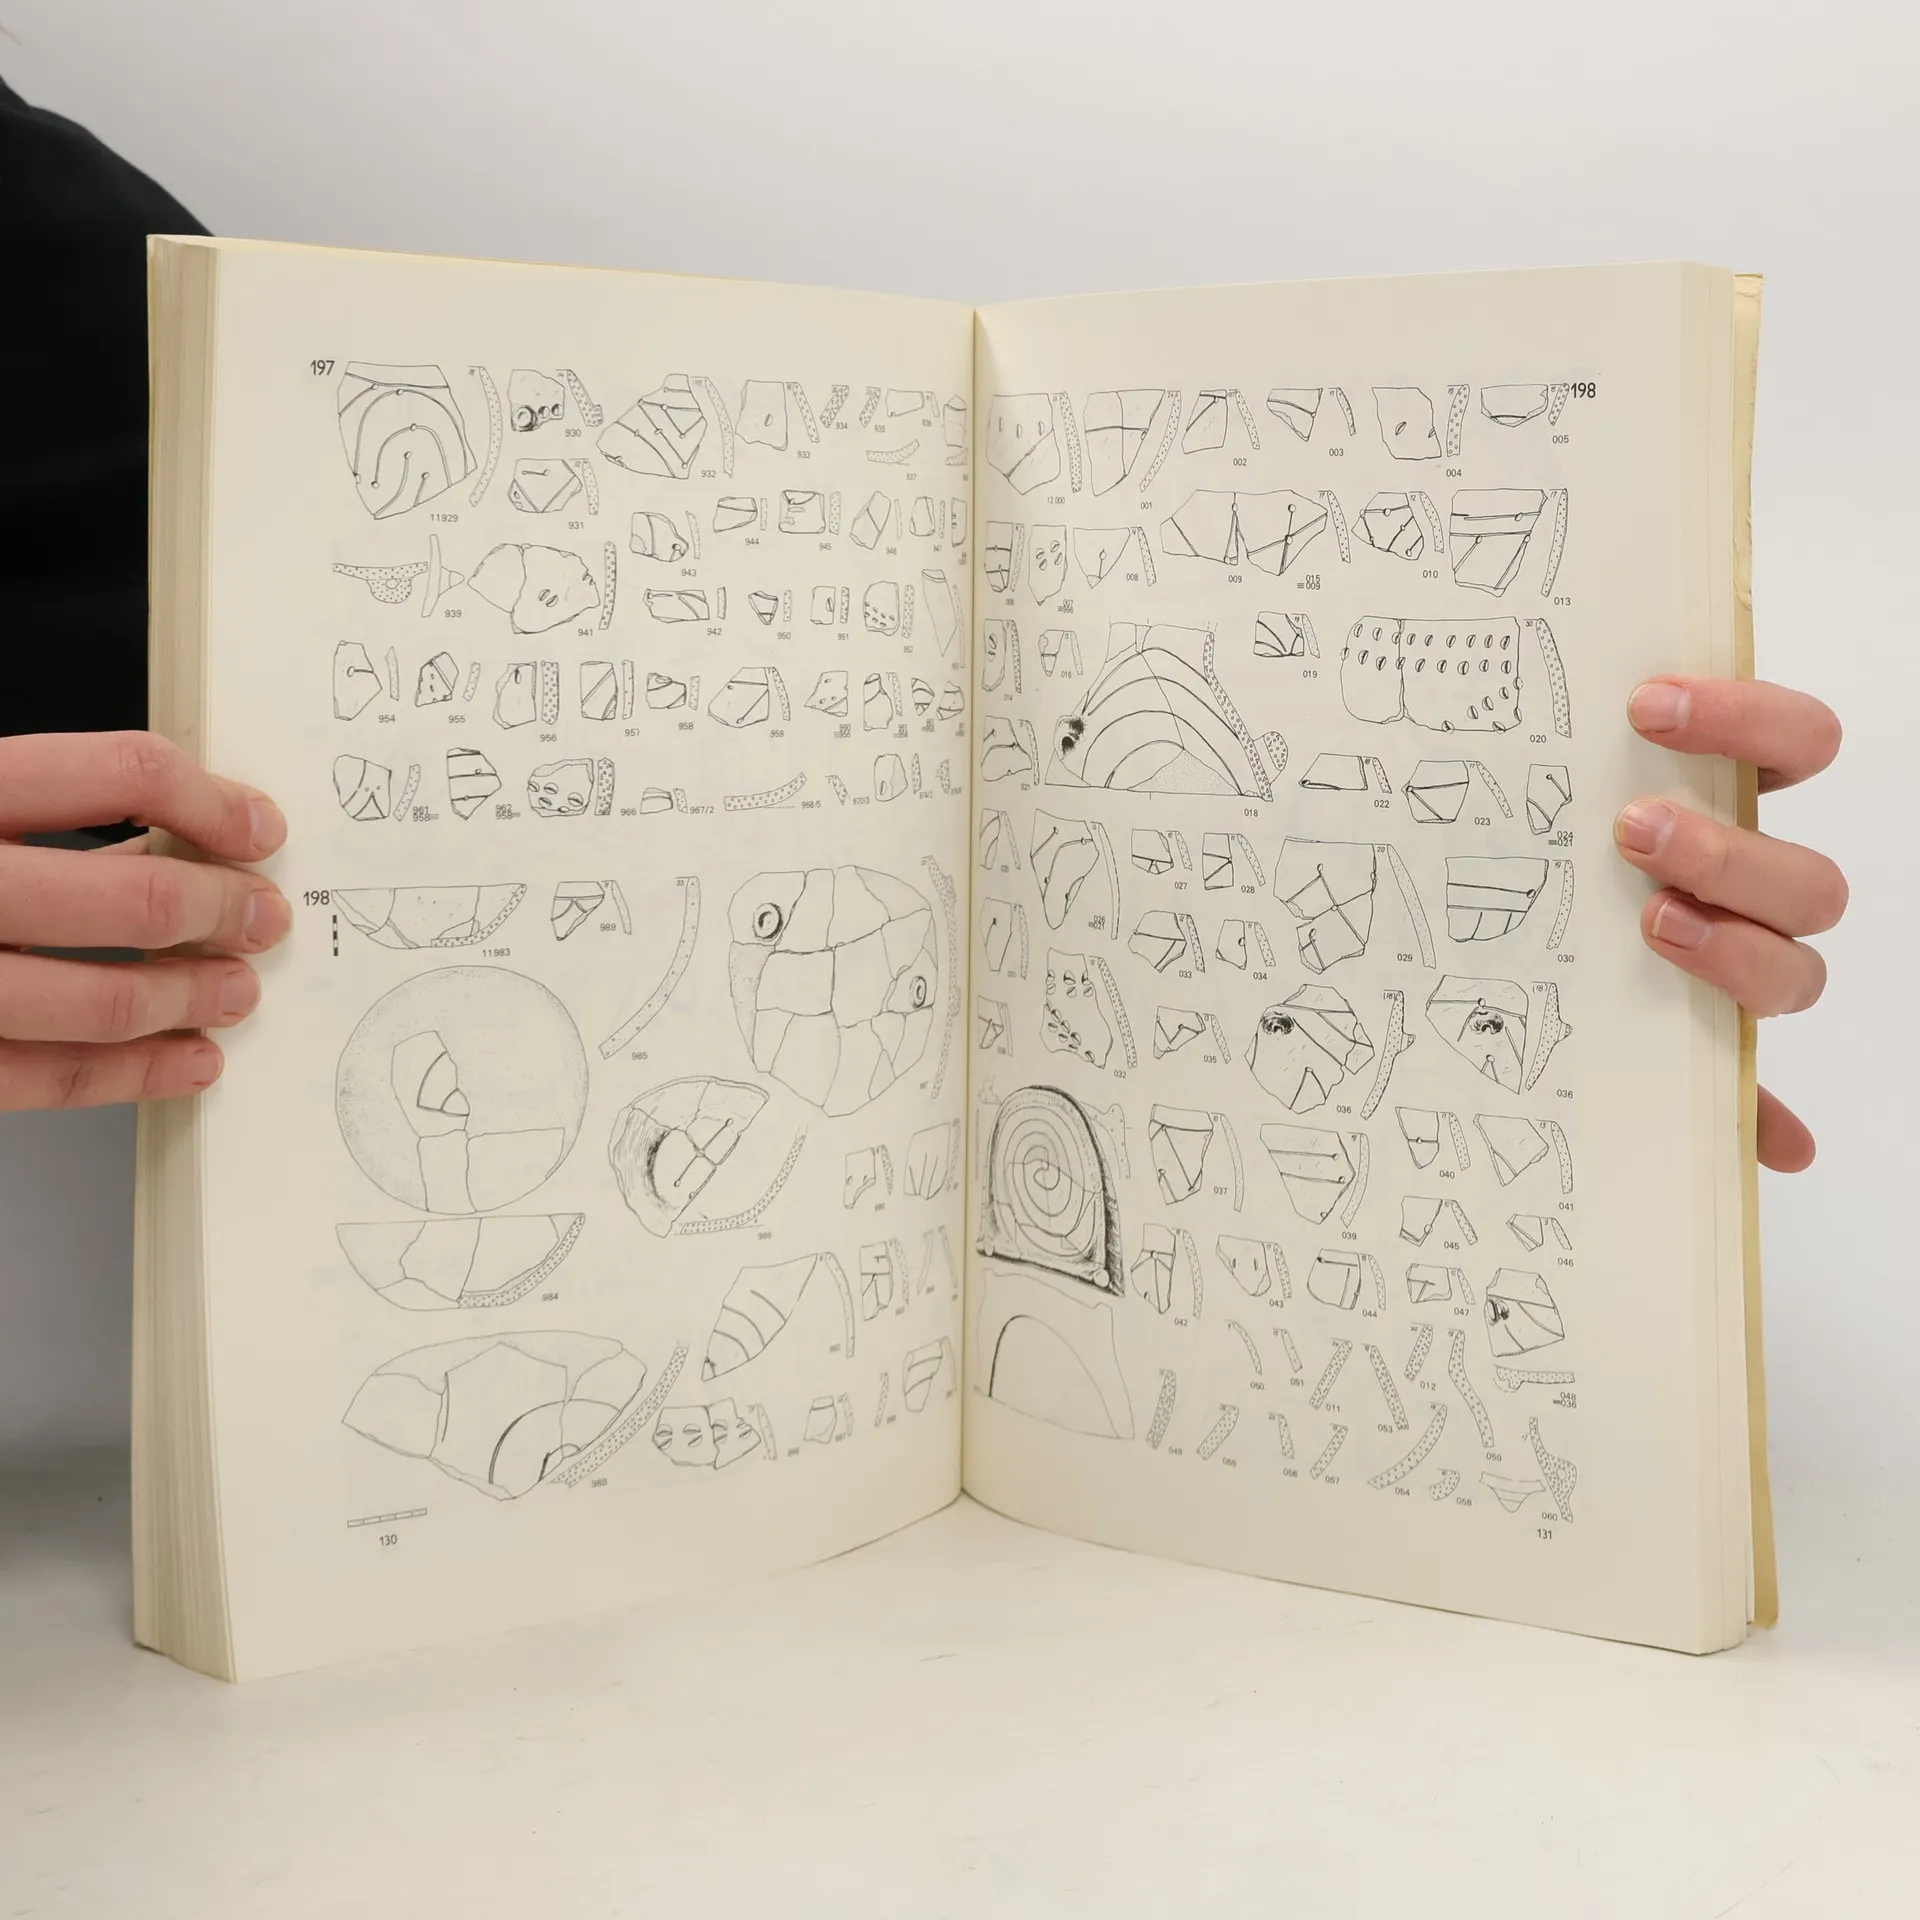 197
11929
930
931
932
933
934
935
937
939
941
942
943
944
945
946
950
951
952
954
955
956
957
958
959
961
958=
962
958=
966
967/2
968/5
970/3
198
11983
989
985
984
986
988
130
198
12 000
001
002
003
004
005
008
009
015
=009
010
013
007
016
018
019
020
021
022
023
024
=021
026
=021
027
028
029
030
032
033
034
035
036
036
037
039
040
041
042
043
044
045
046
047
048
=036
049
050
051
011
012
053
054
055
056
057
058
059
060
131